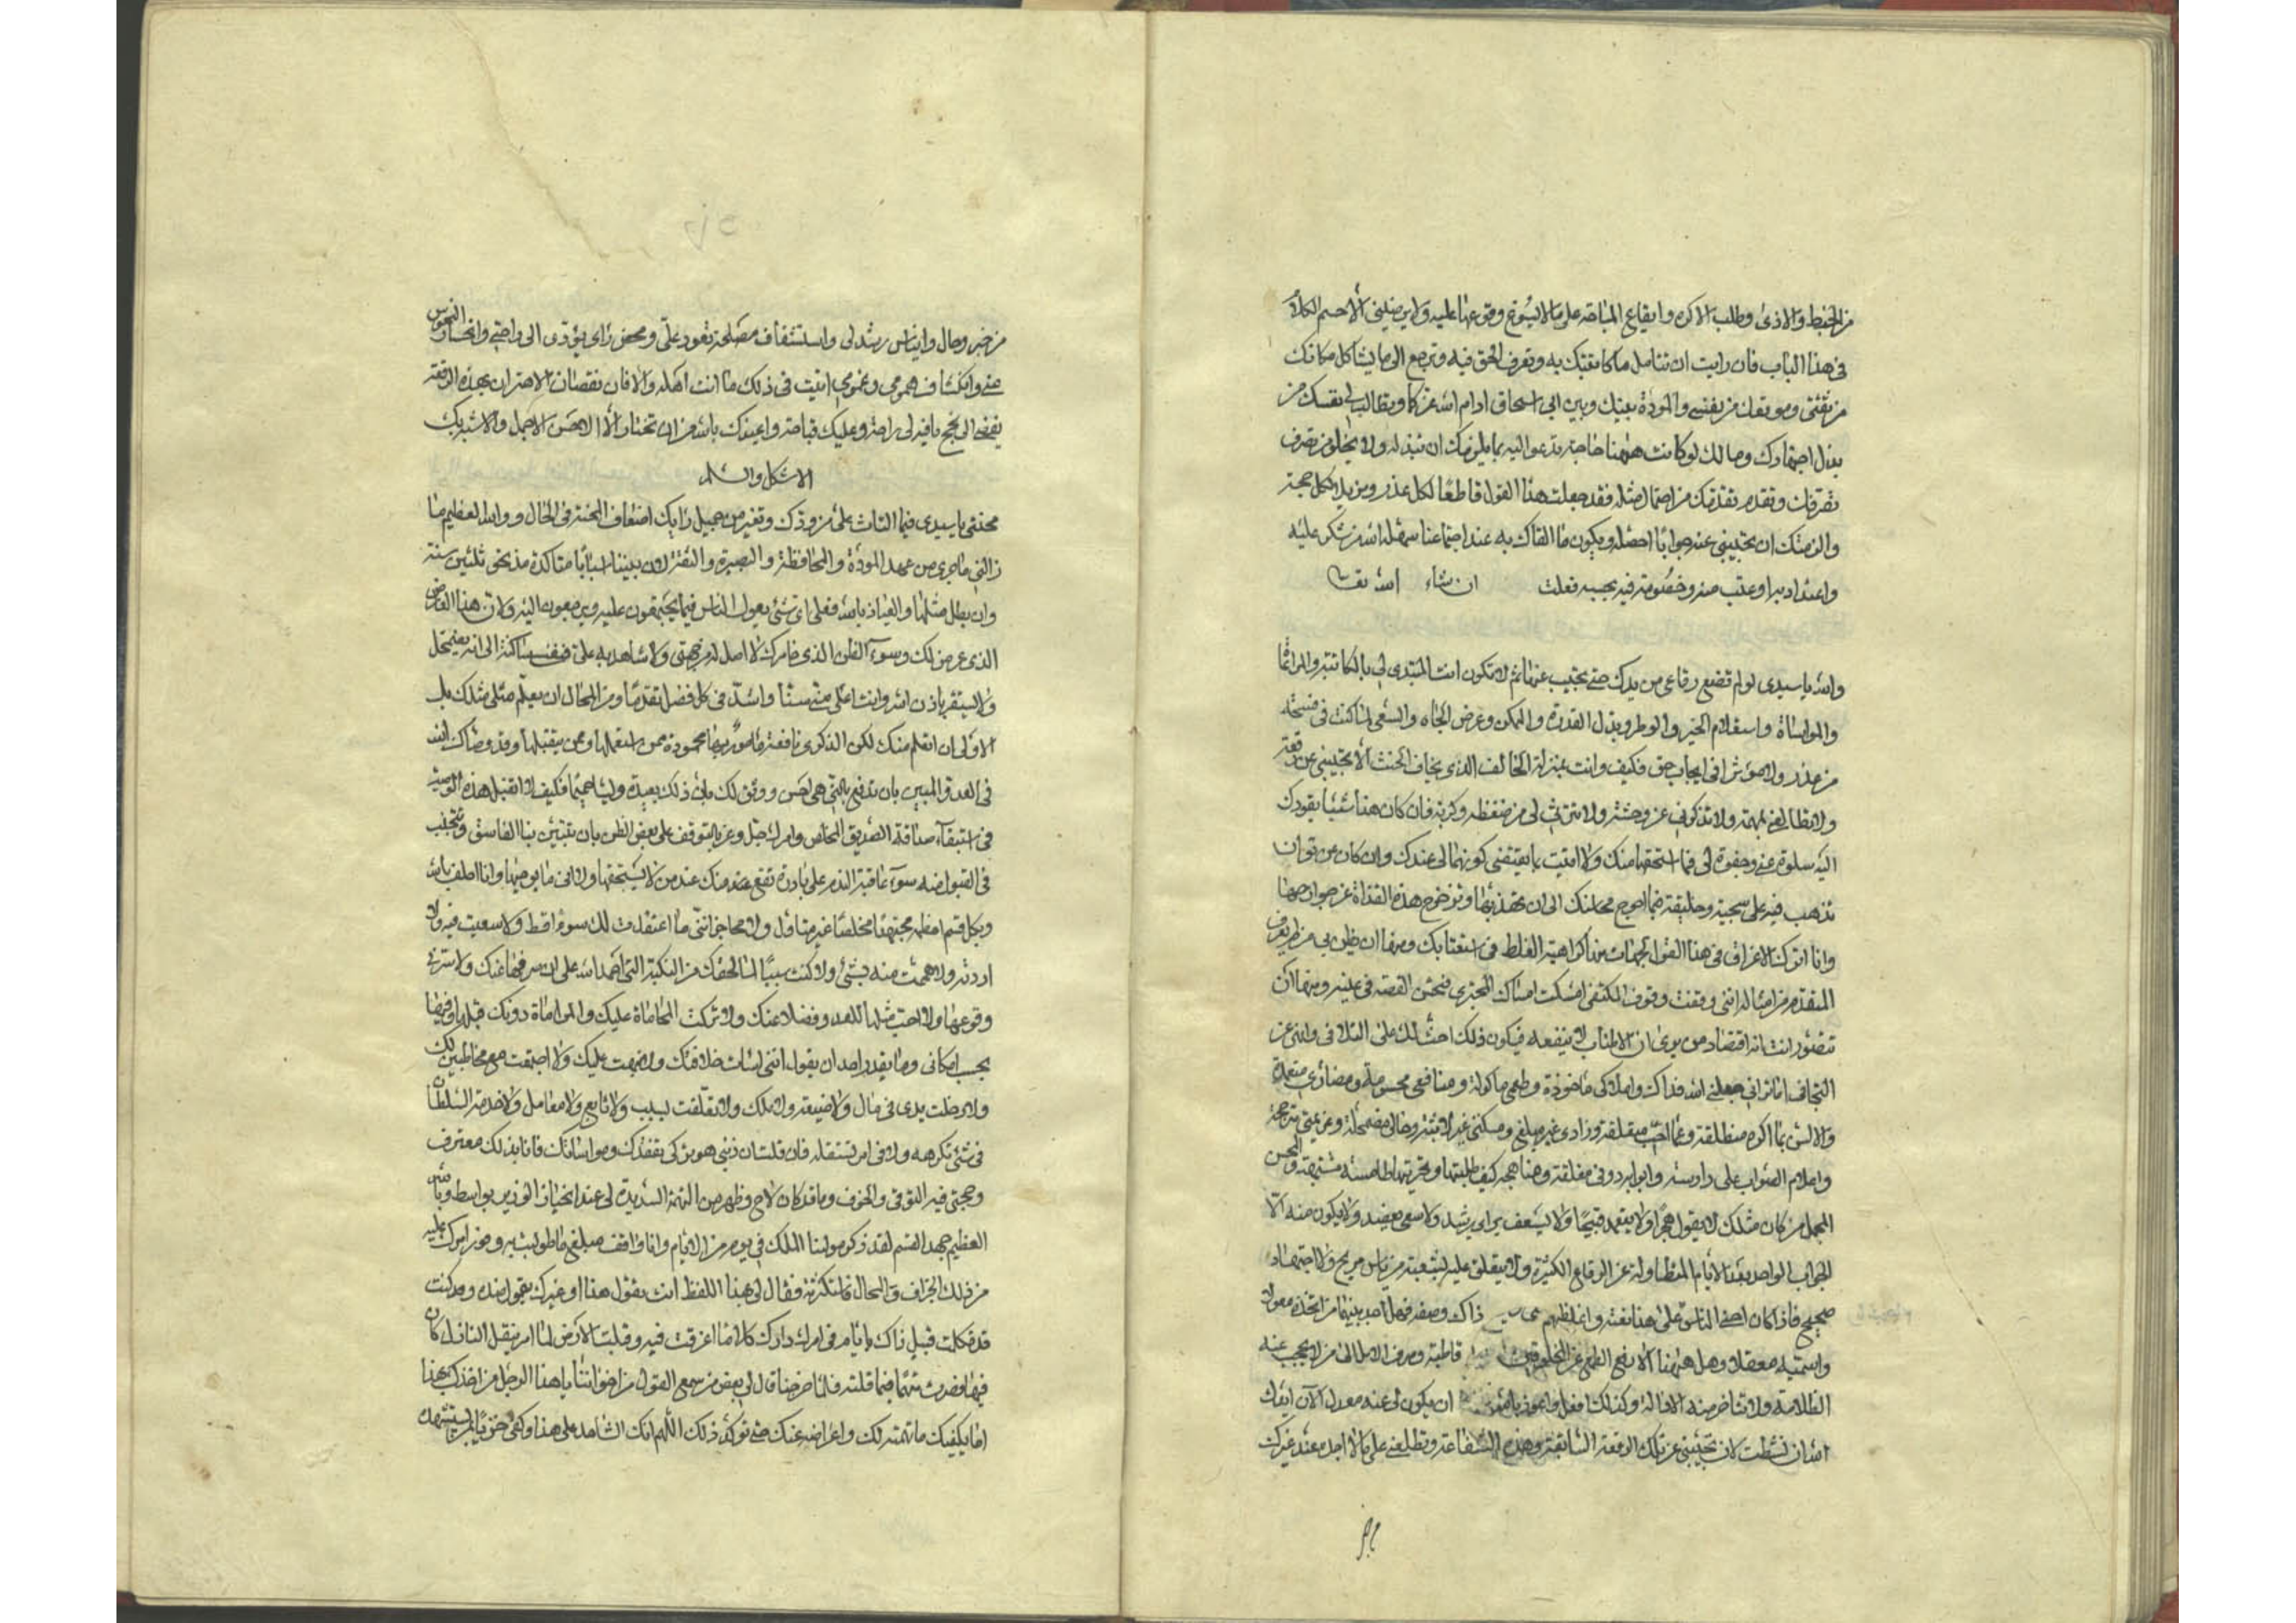 من الحفظ والاذى وطلب الاكره وايقاع المناصه على ما لا يسوغ وقوعها عليه ولا يرضيني الا حسم الكلام
فى هذا الباب فان رايت ان تتامل ما كاتبتك به وتعرف الحق فيه وترجع الى ما يشاكل مكانك
من ثقتى وموقعك من نفسى والمودة بينك وبين ابى اسحاق ادام الله عزكما وتطالب لى نفسك من
بذل اجتهادك ومالك لو كانت ههنا حاجة تدعو اليه بما يلزمك ان تبذله ولا يخلو من تصرف
تصرفك وتقدم تقدمك من احتمال مثله فقد جعلت هذا القول قاطعًا لكل عذر ومزيلا لكل حجة
والزمتك ان تجيبنى عنه جوابًا احصله ويكون ما القاك به عند اجتماعنا سهله الله من شكر عليه
واعتداد به او عتب منه وخصومة فيه بحسبه فعلت ان شاء الله تعالى
والله يا سيدى لو لم تضع رقاعى من يدك حتى تجيب عنها ثم لا تكون انت المبتدى لى بالمكاتبة والمراعاة
والمواساة واستعلام الخبر والوطر وبذل القدرة والممكن وعرض الجاه والسعى لما كنت فى فسحة
من عذر ولا موثرا فى ايجاب حق فكيف وانت بمنزلة الحالف الذى يخاف الحنث الا تجيبنى عن رقعة
ولا تطالعنى بمهمة ولا تذكونى عن وحشة ولا ترثى لى من ضغطة وكربة فان كان هذا شيئا يقودك
اليه سلوة عنى وجفوة لى فما استحقها منك ولا اتيت بما يقتضى كونهما لى عندك وان كان عن توان
تذهب فيه على سجية وخليقة فما احوج محاسنك الى ان تهذبها وتزحزح هذه القذاة عن جوارحها
وانا اترك الاغراق فى هذا القول لجهات منها كراهية الغلط فى استعتابك ومنها ان ظن بى من طريف
المتقدم من امثاله اننى وقفت وقوف المكتفى امسكت امساك المجتزى فتحسن القصة فى عينه ومنها ان
تتصور انت انه اقتصاد من يرى ان الاطناب لا ينفعه فيكون ذلك احث لك على التلافى واثنى عن
التجافى اما ترانى جعلنى الله فداك واملاكى ماخوذة وطعمى ماكولة ومنافعى محسومة ومضارى متصلة
والالسن بما اكره منطلقة وعما احب معتقلة وزادى غير مبلغ ومسكنتى غير لابثة وحالى مضمحلة وعزيمتى مترجحة
واعلام الصواب على دارسة وابوابه دونى مغلقة ومناهجه كيف طلبتها وتحريتها طامسة مشتبهة والمحسن
المجمل من كان مثلك لا يقول هجرًا ولا يتعمد قبيحًا ولا يسعف براى رشيد ولا سعى مفيد ولا يكون منه الا
الجواب الواحد بعد الايام المتطاولة عن الرقاع الكثيرة ولا يتعلق عليه لشعبة من ياس مريح ولا اجتهاد
صحيح فاذا كان احنى الناس على هذا نعته واغلظهم ذاك وصفه فهل احد بينهما من اتخذه معولا
واستميله معقلا وهل ههنا الا رفع الطمع عن المخلوقين قاطبة وصرف الامال الى من لا يحجب عنه
الظلامة ولا تتاخر منه الاقالة وكذلك افعل واعوذ بالله ان يكون لى عنه معدل الان ايدك
الله ان نشطت لان تجيبنى عن تلك الرقعة السابقة وهذه الشفاعة وتطلعنى على ما لا اجد عند غيرك
من خبر وحال وايناس رشد لى واستئناف مصلحة تعود على ومحض راى يؤدى الى راحتى وانحسار النحوس
عنى وانكشاف همومى وغمومى اتيت فى ذلك ما انت اهله والا فان نقصان الاهتزاز بهذه الرقعة
يفضى الى نجح ما فيه لى راحة وعليك قباحة واعيذك بالله من ان تختار الا الاحسن الاجمل والاشبه بك
الاشكل والسلم
محنتى يا سيدى فيما التاث على من ودك وتغير من جميل رايك اضعاف المحنة فى الحال ووالله العظيم ما
زالنى ما جرى من عهد المودة والمحافظة والبصيرة والثقة لان بيننا اسبابا متاكدة مذ نحو ثلثين سنة
وان بطل مثلها والعياذ بالله فعلى اى شئ يعول الناس فيما يجتمعون عليه ويرجعون اليه ولان هذا العارض
الذى عرض لك وسوء الظن الذى خامرك لا اصل له من جهتى ولا شاهد به على فنفسى ساكنة الى انه يضمحل
ولا يستقر باذن الله وانت اعلى منى سنا واشد فى كل فضل تقدمًا ومن المحال ان يعلم مثلى مثلك بل
الاولى ان اتعلم منك لكن الذكرى نافعة مامور بها محمودة ممن استعملها وممن يتقبلها وقد وصاك الله
فى العدو المبين بان تدفع بالتى هى احسن ووثق لك بان ذلك يعيده وليا حميمًا فكيف لا تقبل هذه الوصية
فى استبقاء صداقة الصديق المخلص وامرك جل وعز بالتوقف على بعض الظن بان تتبين نبا الفاسق وتتجنب
فى القبول منه سوء عاقبة الندم على بادرة تقع منك عند من لا يستحقها ولا اتى ما يوجبها وانا احلف بالله
وبكل قسم احلفه مجتهدًا مخلصًا غير متاول ولا محاجز اننى ما اعتقدت لك سوءا قط ولا سعيت فيه ولا
اردته ولا هممت منه بشئ ولا كنت سببًا لما لحقك من النكبة التى احمد الله على ان صرفها عنك ولا سرنى
وقوعها ولا احب مثلها للعدو فضلا عنك ولا تركت المحاماة عليك والمراماة دونك قبلها وفيها
بحسب امكانى وما يقدر احد ان يقول اننى اسات خلافتك ولا ضجعت عليك ولا اجتمعت مع مخاطبين لك
ولا دخلت يدى فى مال ولا ضيعة ولا ملك ولا تعلقت بسبب ولا تابع ولا معامل ولا خدمة السلطان
فى شئ تكرهه ولا فى امر تستثقله فان قلت ان ذنبى هو تركى تفقدك ومواساتك فانا بذلك معترف
وحجتى فيه التوقى والخوف وما قد كان لاح وظهر من التهمة الشديدة لى عند انحياز الوزير بواسط وبالله
العظيم جهد القسم لقد ذكر مولينا الملك فى يوم من الايام وانا واقف مبلغ ما طولبت به وفورق امرك عليه
من ذلك الجزاف والمحال فاستكثرته فقال لى بهذا اللفظ انت تقول هذا او غيرك يقول ضده وقد كنت
قد تكلمت قبيل ذاك بايام فى امر دارك كلامًا اغرقت فيه وقبلت الارض لما امر بنقل النازل كان
فيها فصرت متهمًا فيما قلته فلما خرجنا قال لى بعض من سمع القول من اخواننا يا هذا الرجل من اخذك بهذا
اما يكفيك ما تهمته لك واعراضه عنك حتى توكد ذلك اللهم انك الشاهد على هذا وكفى حقويًا لمن يستشهدك